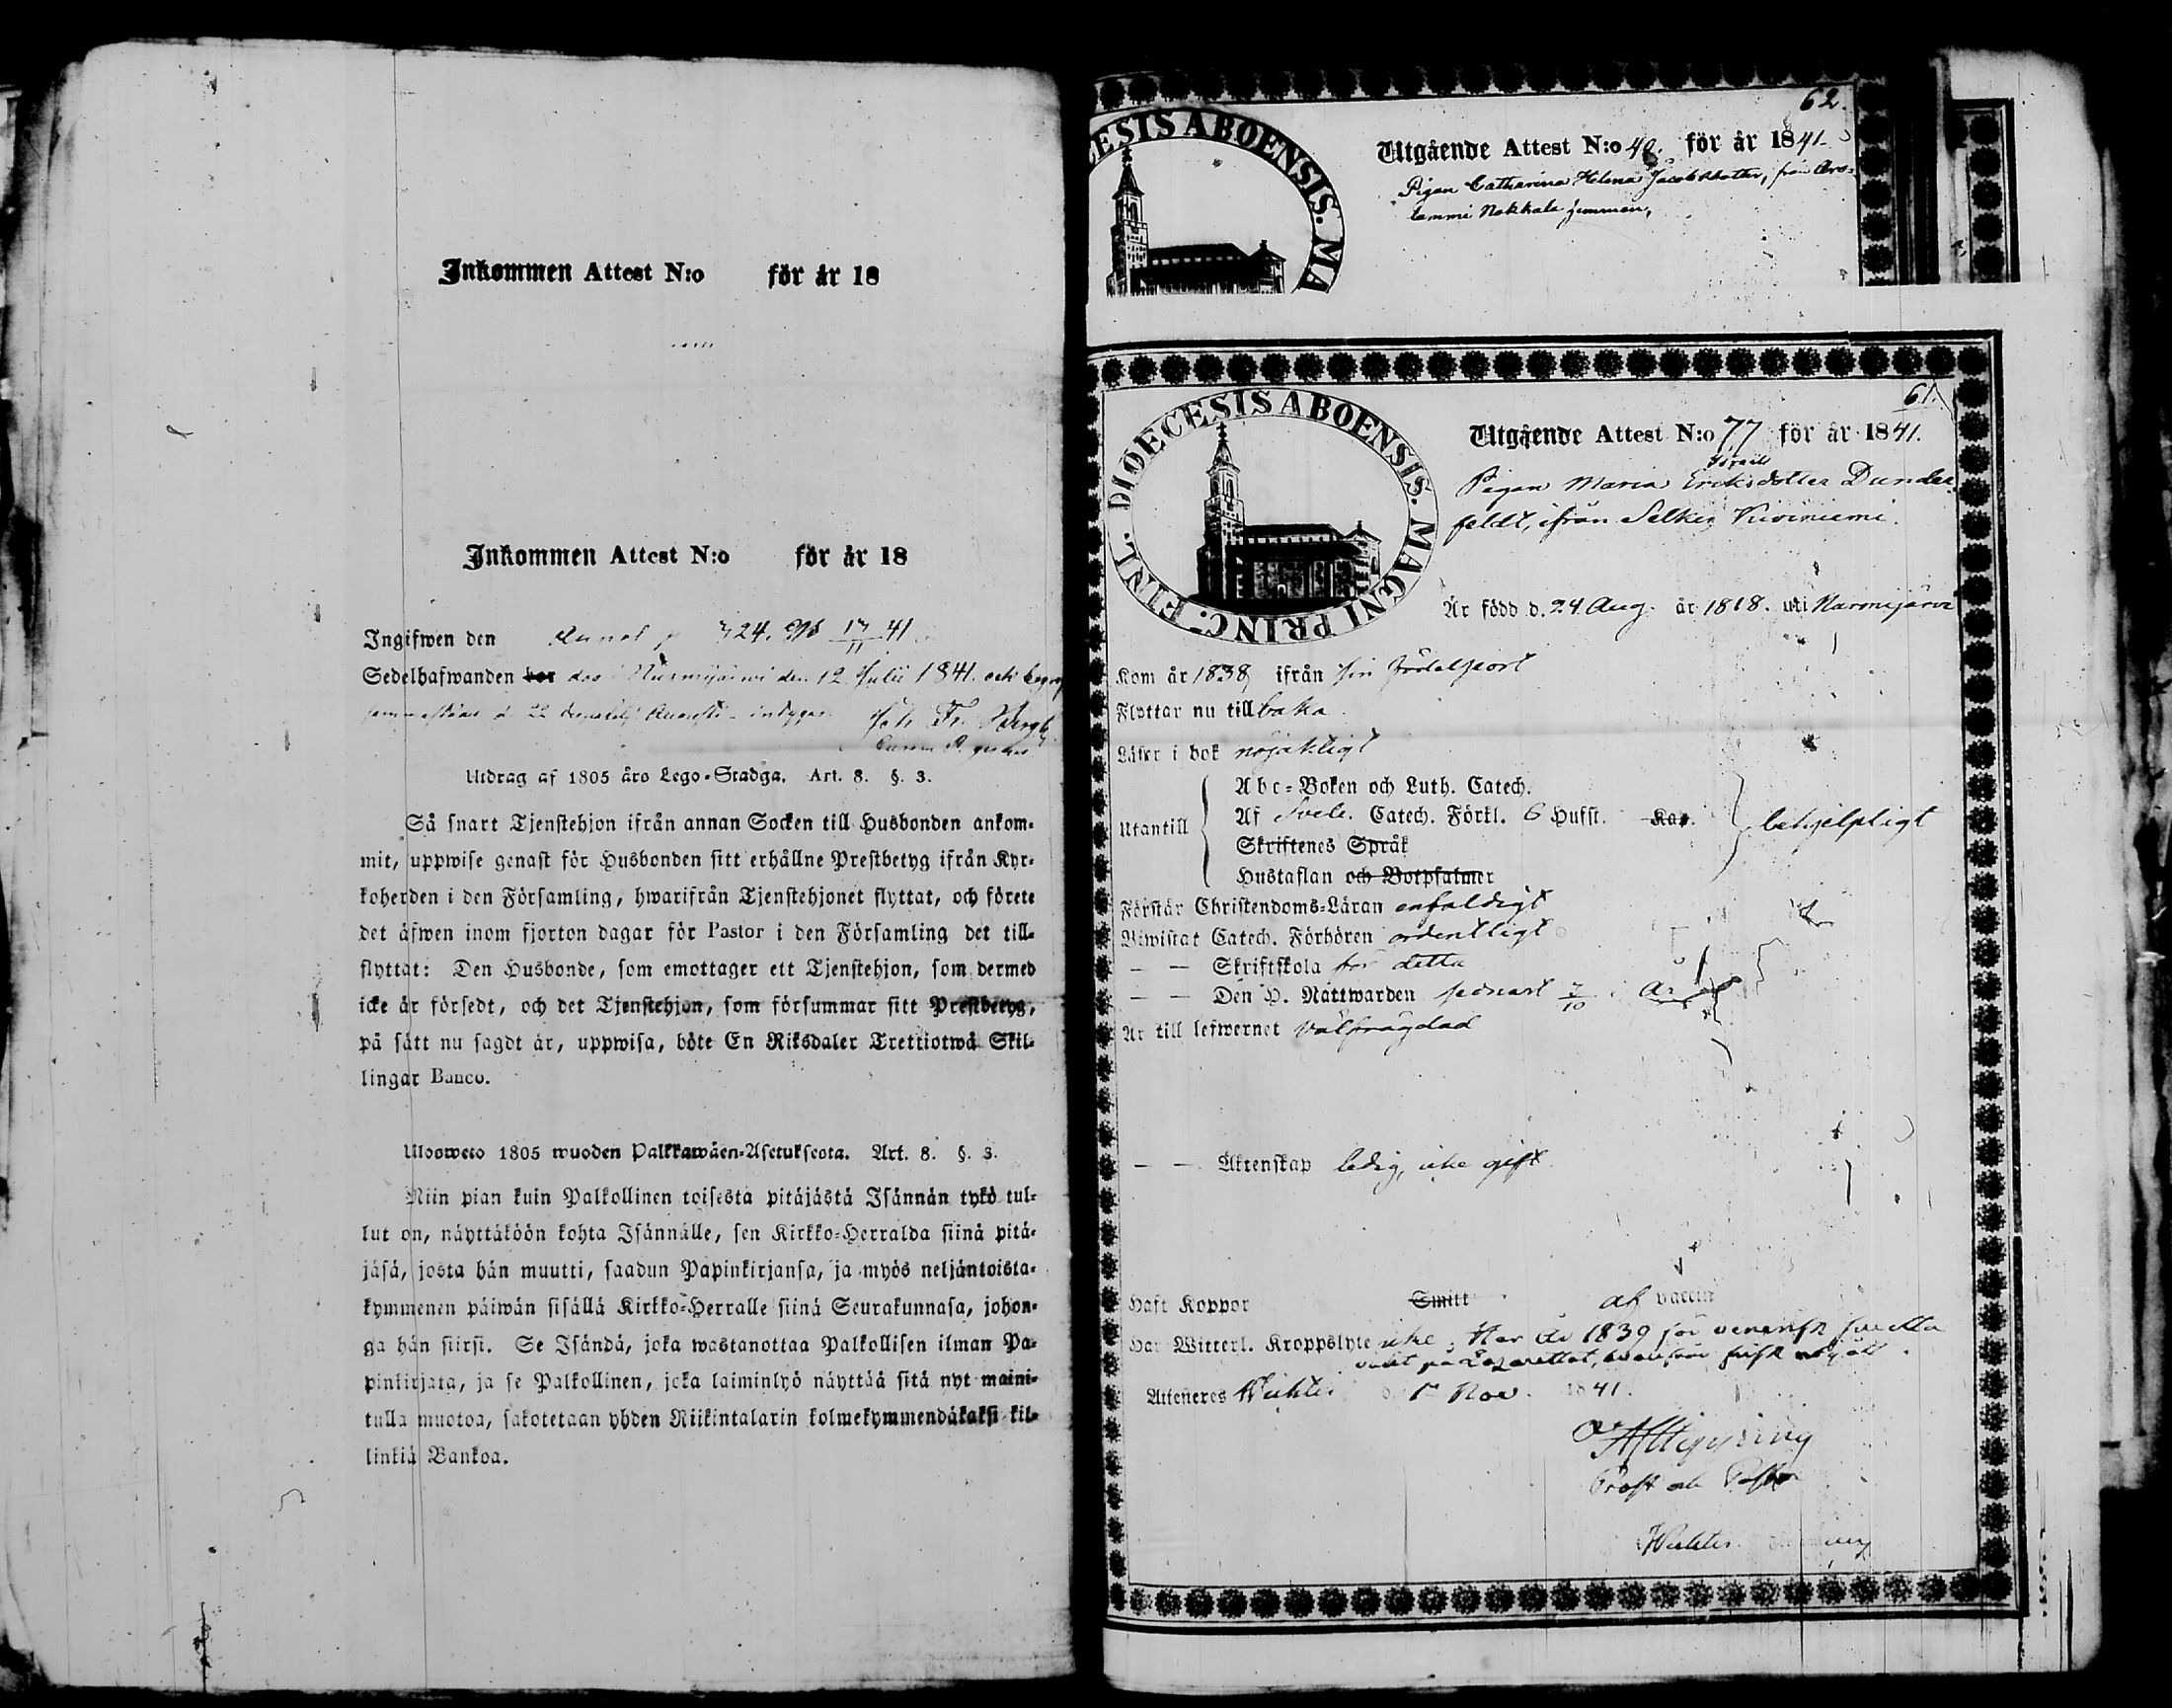 Inkommen Attest N:o för år 18
Inkommen Attest N:o för år 18
Ingifwen den 24. 17/11 41.
Sedelhafwanden bor död i Nurmijärwi den 12 Julii 1841. och
d. 22 Augusti intygar Joh. Fr.
Utdrag af 1805 års Lego-Stadga. Art. 8. §. 3.
Så snart Tjenstehjon ifrån annan Socken till Husbonden ankom-
mit, uppwise genast för Husbonden sitt erhållne Prestbetyg ifrån Kyr-
koherden i den Församling, hwarifrån Tjenstehjonet flyttat, och förete
det äfwen inom fjorton dagar för Pastor i den Församling det till-
flyttat: Den Husbonde, som emottager ett Tjenstehjon, som dermed
icke är försedt, och det Tjenstehjon, som försummar sitt Prestbetyg,
på sätt nu sagdt är, uppwisa, böte En Riksdaler Trettiotwå Skil-
lingar Banco.
Ulosweto 1805 wuoden Palkkawäen-Asetuksesta. Art. 8. §. 3.
Niin pian kuin Palkollinen toisesta pitäjästä Isännän tykö tul-
lut on, näyttäköön kohta Isännälle, sen Kirkko-Herralda siinä pitä-
jäsä, josta hän muutti, saadun Papinkirjansa, ja myös neljäntoista-
kymmenen päiwän sisällä Kirkko-Herralle siinä Seurakunnasa, johon-
ga hän siirsi. Se Isändä, joka wastanottaa Palkollisen ilman Pa-
pinkirjata, ja se Palkollinen, joka laiminlyö näyttää sitä nyt maini-
tulla muotoa, sakotetaan yhden Riikintalarin kolmekymmendäkaksi kil-
linkiä Bankoa.
62.
ESIS ABOENSIS. MA
Utgående Attest N:o 40. för år 1841.
Pigan Catharina Helena Jacobsdotter, från
lammi Nakkala
61.
DIOECESIS ABOENSIS. MAGNI PRINC. FINL.
Utgående Attest N:o 77 för år 1841.
Israels
Pigan Maria Eriksdotter Dunder-
feldt, ifrån Selki Kuviniemi.
Är född d. 24 Aug. år 1818. uti Nurmijärvi
Kom år 1838 ifrån sin födelseort
Flyttar nu tillbaka
Läser i bok nöjaktligt
Utantill
Abc-Boken och Luth. Catech.
Af Sveb. Catech. Förkl. 6 Hufst. Kap.
Skriftenes Språk
Hustaflan och Botpsalmer
behjelpligt
Förstår Christendoms-Läran enfaldigt
Biwistat Catech. Förhören ordentligt
— — Skriftskola för detta
— — Den H. Nattwarden sednast 3/10 i. år
Är till lefwernet välfrägdad
— — Äktenskap ledig, icke gift
Haft Koppor Smitt af vaccin
Har Witterl. Kroppslyte icke; Har År 1839 för venerisk smitta
varit på Lazarettet, frisk
Attesteres Wichtis d. 1 Nov. 1841.
Prost och Pastor
Wichtis